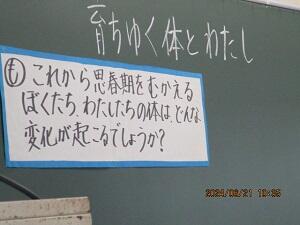 育ちゆく体とわたし
も これから思春期をむかえる
ぼくたち、わたしたちの体は、どんな
変化が起こるでしょうか?
2024/06/21 10:35